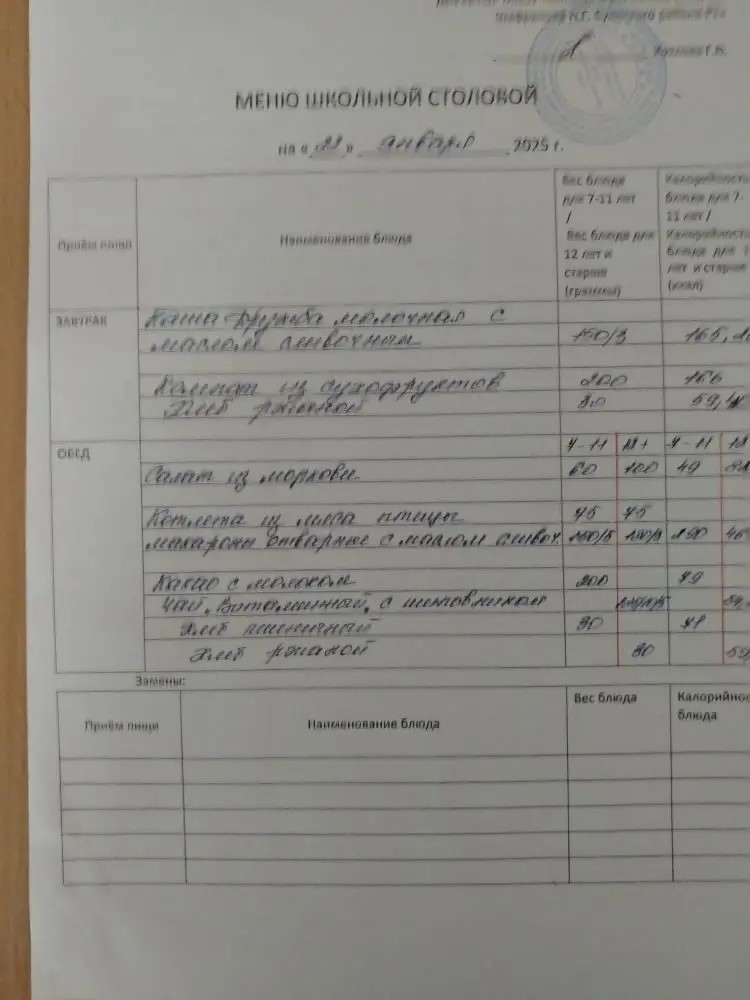 Г.Н.
МЕНЮ ШКОЛЬНОЙ СТОЛОВОЙ
на « 22 » января 2025 г.
Приём пищи
Наименование блюда
Вес блюда для 7-11 лет / Вес блюда для 12 лет и старше (граммы)
Калорийность блюда для 7-11 лет / Калорийность блюда для лет и старше (ккал)
ЗАВТРАК
Каша Дружба молочная с
маслом сливочным 150/3 165,
Компот из сухофруктов 200 166
Хлеб ржаной 30 59,
ОБЕД
7-11 12+ 7-11 12
Салат из моркови 60 100 49
Котлета из мяса птицы 75 75
макароны отварные с маслом сливоч. 150/5 290
Какао с молоком 200 79
Чай Витаминный с шиповником
Хлеб пшеничный 30 71
Хлеб ржаной 30 59
Замены:
Приём пищи
Наименование блюда
Вес блюда
Калорийнос
блюда